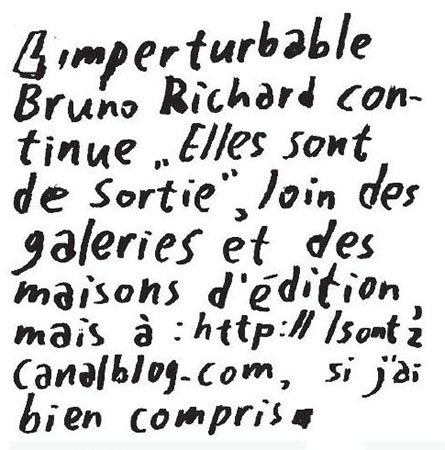 L'imperturbable
Bruno Richard con-
tinue „Elles sont
de Sortie", loin des
galeries et des
maisons d'édition,
mais à : http:// lsont2
canalblog.com, si j'ai
bien compris.